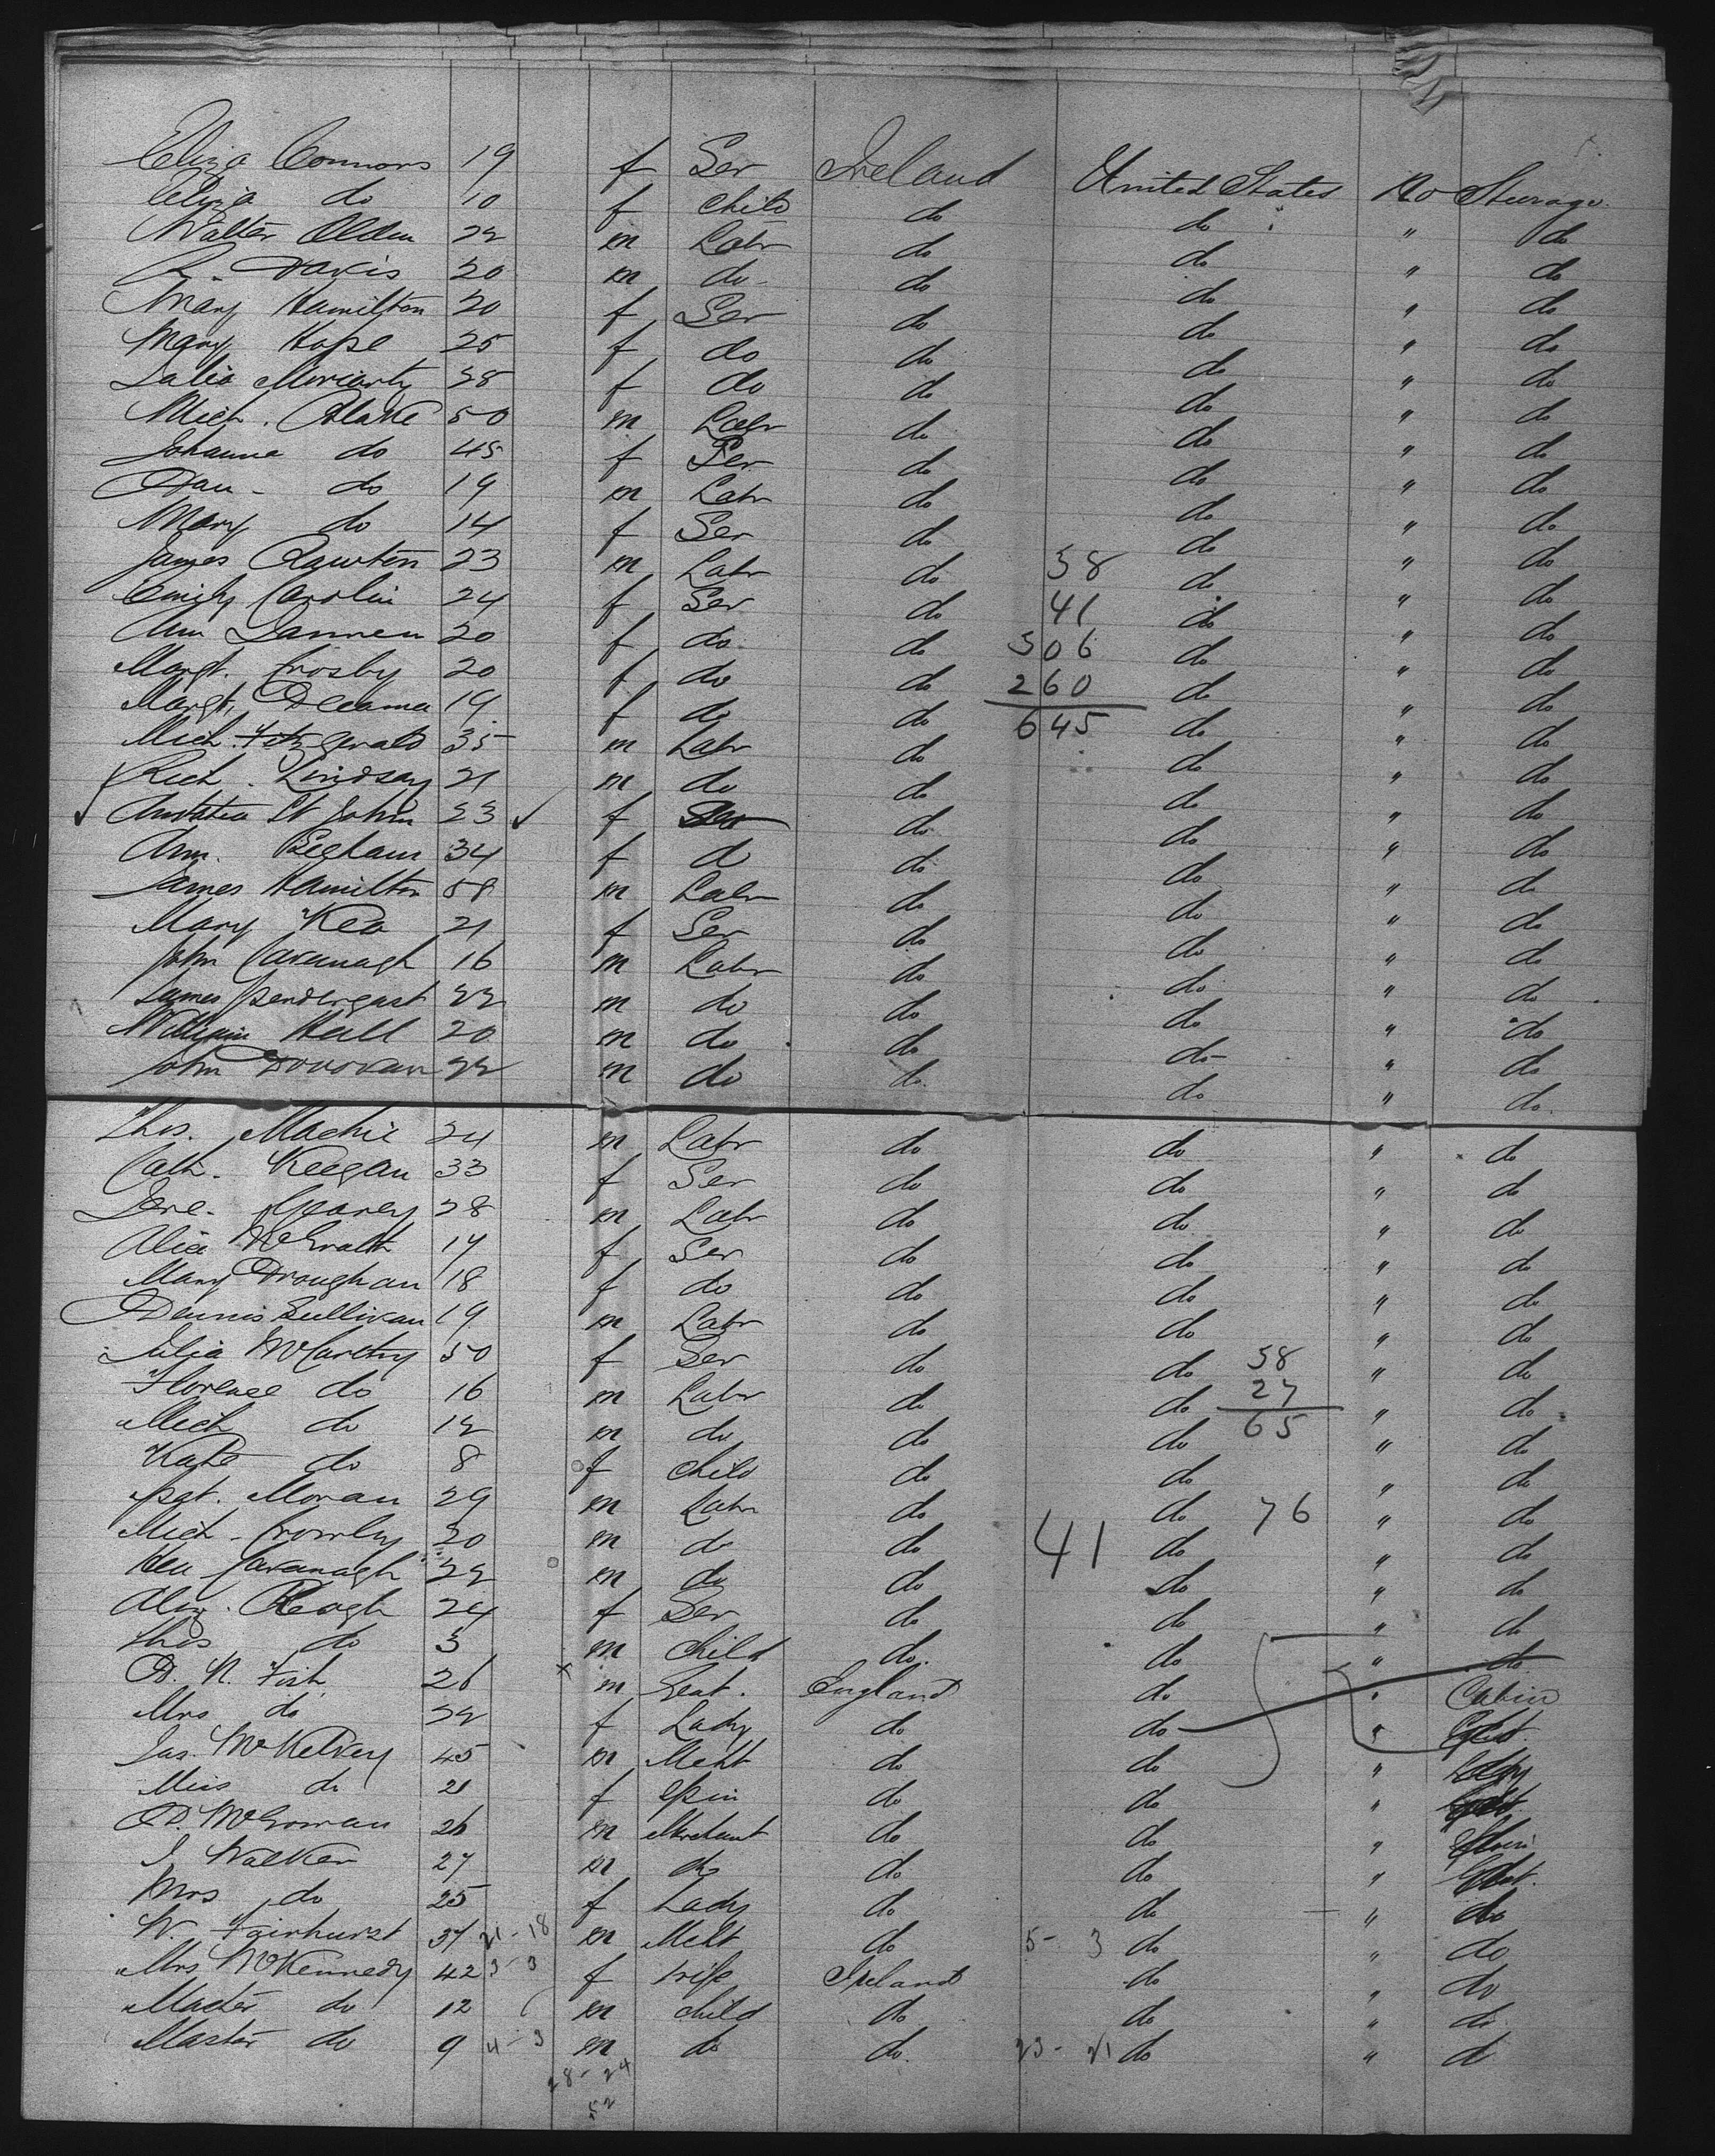 Eliza Connors 19 f Ser Ireland United States No Steerage
Eliza do 10 f child do do " do
Walter Olden 22 m Labr do do " do
Davis 20 m do do do " do
Mary Hamilton 20 f Ser do do " do
Mary Hope 25 f do do do " do
Moriarty 28 f do do do " do
Mich. Blake 50 m Labr do do " do
Johanna do 45 f Ser do do " do
Dan do 19 m Labr do do " do
Mary do 14 f Ser do do " do
James 23 m Labr do 58 do " do
Emily Carolin 24 f Ser do 41 do " do
Ann 20 f do do 306 do " do
Margt. Crosby 20 f do do 260 do " do
Margt. 19 f do do 645 do " do
Mich. Fitzgerald 35 m Labr do do " do
Rich. Lindsay 21 m do do do " do
St John 23 f do do " do
Ann. 34 f do do do " do
James Hamilton 58 m Labr do do " do
Mary Kea 21 f Ser do do " do
John Cavanagh 16 m Labr do do " do
James Pendergast 22 m do do do " do
William Hall 20 m do do do " do
John Donovan 22 m do do do " do
Thos. Mackie 24 m Labr do do " do
Cath. Keegan 33 f Ser do do " do
Jere. Geary 28 m Labr do do " do
Alice McGrath 17 f Ser do do " do
Mary Droughan 18 f do do do " do
Dennis Sullivan 19 m Labr do do " do
Julia McCarthy 50 f Ser do do 38 " do
Florence do 16 m Labr do do 27 " do
Mich do 12 m do do do 65 " do
Kate do 8 f child do do " do
Pat. Moran 29 m Labr do do 76 " do
Mich. Crowley 20 m do do 41 do " do
Cavanagh 22 m do do do " do
Keogh 24 f Ser do do " do
Thos do 3 m child do do " do
D. N. Fish 26 m Gent. England do " Cabin
Mrs do 22 f Lady do do "
Jas. McKelvey 45 m Mcht do do "
Miss do 21 f Spin do do "
D. McGowan 26 m Merchant do do "
J Walker 27 m do do do "
Mrs do 25 f Lady do do " do
W. Fairhurst 37 21-18 m Mcht do 5- 3 do " do
Mrs McKennedy 42 3-3 f wife Ireland do " do
Master do 12 m child do do " do
Master do 9 4-3 m do do 23-21 do " do
28-24
52